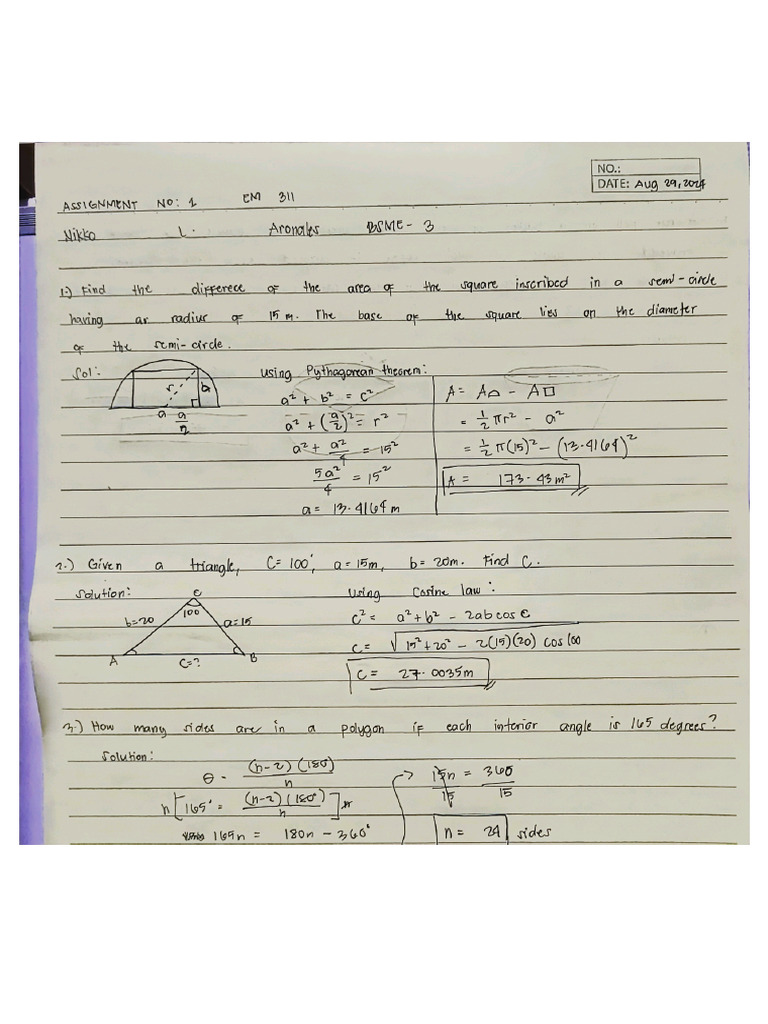 NO.:
DATE: Aug 29, 2024
ASSIGNMENT NO: 1 EM 311
Nikko L. Aronales BSME - 3
1.) Find the differece of the area of the square inscribed in a semi-circle
having ar radius of 15 m. The base of the square lies on the diameter
of the semi-circle.
Sol: using Pythagorean theorem:
r a
a a/2
a² + b² = c²
a² + (a/2)² = r²
a² + a²/4 = 15²
5a²/4 = 15²
a = 13.4164 m
A = A⌓ - A□
= 1/2 πr² - a²
= 1/2 π(15)² - (13.4164)²
A = 173.43 m²
2.) Given a triangle, C = 100°, a = 15m, b = 20m. Find C.
Solution: Using Cosine law:
C
100
b=20 a=15
A C=? B
c² = a² + b² - 2ab cos C
c = √15² + 20² - 2(15)(20) cos 100
c = 27.0035m
3.) How many sides are in a polygon if each interior angle is 165 degrees?
Solution:
θ = (n-2)(180°)/n
n[165° = (n-2)(180°)/n]n
165n = 180n - 360°
15n/15 = 360/15
n = 24 sides